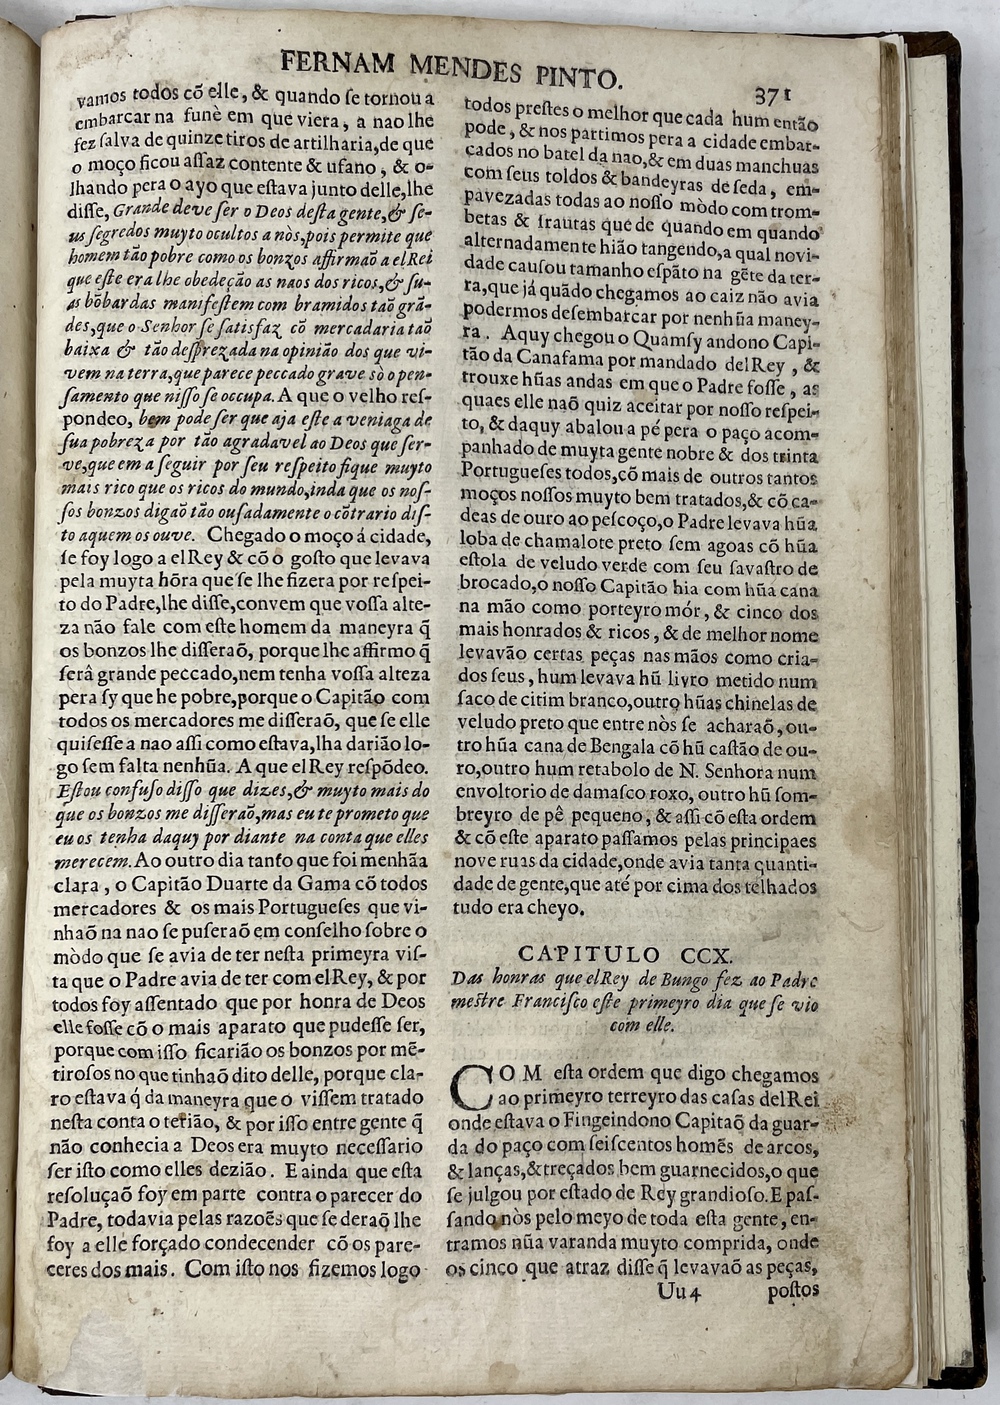 FERNAM MENDES PINTO.
371
vamos todos cõ elle, & quando ſe tornou a
embarcar na funè em que viera, a nao lhe
fez ſalva de quinze tiros de artilharia, de que
o moço ficou aſſaz contente & ufano, & o-
lhando pera o ayo que eſtava junto delle, lhe
diſſe, Grande deve ſer o Deos deſta gente, & ſe-
us ſegredos muyto ocultos a nòs, pois permite que
homem tão pobre como os bonzos affirmaõ a elRei
que eſte era lhe obedeção as naos dos ricos, & ſu-
as bõbardas manifeſtem com bramidos taõ grã-
des, que o Senhor ſe ſatisfaz cõ mercadaria taõ
baixa & tão deſprezada na opinião dos que vi-
vem na terra, que parece peccado grave sò o pen-
ſamento que niſſo ſe occupa. A que o velho reſ-
pondeo, bem pode ſer que aja eſte a veniaga de
ſua pobreza por tão agradavel ao Deos que ſer-
ve, que em a ſeguir por ſeu reſpeito fique muyto
mais rico que os ricos do mundo, inda que os noſ-
ſos bonzos digaõ tão ouſadamente o cõtrario diſ-
to aquem os ouve. Chegado o moço á cidade,
ſe foy logo a elRey & cõ o goſto que levava
pela muyta hõra que ſe lhe fizera por reſpei-
to do Padre, lhe diſſe, convem que voſſa alte-
za não fale com eſte homem da maneyra q̃
os bonzos lhe diſſeraõ, porque lhe affirmo q̃
ſerâ grande peccado, nem tenha voſſa alteza
pera ſy que he pobre, porque o Capitão com
todos os mercadores me diſſeraõ, que ſe elle
quiſeſſe a nao aſſi como eſtava, lha darião lo-
go ſem falta nenhũa. A que elRey reſpõdeo.
Eſtou confuſo diſſo que dizes, & muyto mais do
que os bonzos me diſſeraõ, mas eu te prometo que
eu os tenha daquy por diante na conta que elles
merecem. Ao outro dia tanto que foi menhãa
clara, o Capitão Duarte da Gama cõ todos
mercadores & os mais Portugueſes que vi-
nhaõ na nao ſe puſeraõ em conſelho ſobre o
mòdo que ſe avia de ter neſta primeyra viſ-
ta que o Padre avia de ter com elRey, & por
todos foy aſſentado que por honra de Deos
elle foſſe cõ o mais aparato que pudeſſe ſer,
porque com iſſo ficarião os bonzos por mẽ-
tiroſos no que tinhaõ dito delle, porque cla-
ro eſtava q̃ da maneyra que o viſſem tratado
neſta conta o terião, & por iſſo entre gente q̃
não conhecia a Deos era muyto neceſſario
ſer iſto como elles dezião. E ainda que eſta
reſoluçaõ foy em parte contra o parecer do
Padre, todavia pelas razoẽs que ſe deraõ lhe
foy a elle forçado condecender cõ os pare-
ceres dos mais. Com iſto nos fizemos logo
todos preſtes o melhor que cada hum então
pode, & nos partimos pera a cidade embar-
cados no batel da nao, & em duas manchuas
com ſeus toldos & bandeyras de ſeda, em-
pavezadas todas ao noſſo mòdo com trom-
betas & frautas que de quando em quando
alternadamente hião tangendo, a qual novi-
dade cauſou tamanho eſpãto na gẽte da ter-
ra, que já quãdo chegamos ao caiz não avia
podermos deſembarcar por nenhũa maney-
ra. Aquy chegou o Quamſy andono Capi-
tão da Canafama por mandado delRey, &
trouxe hũas andas em que o Padre foſſe, as
quaes elle naõ quiz aceitar por noſſo reſpei-
to, & daquy abalou a pé pera o paço acom-
panhado de muyta gente nobre & dos trinta
Portugueſes todos, cõ mais de outros tantos
moços noſſos muyto bem tratados, & cõ ca-
deas de ouro ao peſcoço, o Padre levava hũa
loba de chamalote preto ſem agoas cõ hũa
eſtola de veludo verde com ſeu ſavaſtro de
brocado, o noſſo Capitão hia com hũa cana
na mão como porteyro mór, & cinco dos
mais honrados & ricos, & de melhor nome
levavão certas peças nas mãos como cria-
dos ſeus, hum levava hũ livro metido num
ſaco de citim branco, outro hũas chinelas de
veludo preto que entre nòs ſe acharaõ, ou-
tro hũa cana de Bengala cõ hũ caſtão de ou-
ro, outro hum retabolo de N. Senhora num
envoltorio de damaſco roxo, outro hũ ſom-
breyro de pê pequeno, & aſſi cõ eſta ordem
& cõ eſte aparato paſſamos pelas principaes
nove ruas da cidade, onde avia tanta quanti-
dade de gente, que até por cima dos telhados
tudo era cheyo.
CAPITULO CCX.
Das honras que elRey de Bungo fez ao Padre
meſtre Franciſco eſte primeyro dia que ſe vio
com elle.
COM eſta ordem que digo chegamos
ao primeyro terreyro das caſas delRei
onde eſtava o Fingeindono Capitaõ da guar-
da do paço com ſeiſcentos homẽs de arcos,
& lanças, & treçados bem guarnecidos, o que
ſe julgou por eſtado de Rey grandioſo. E paſ-
ſando nòs pelo meyo de toda eſta gente, en-
tramos nũa varanda muyto comprida, onde
os cinco que atraz diſſe q̃ levavaõ as peças,
Uu 4 poſtos